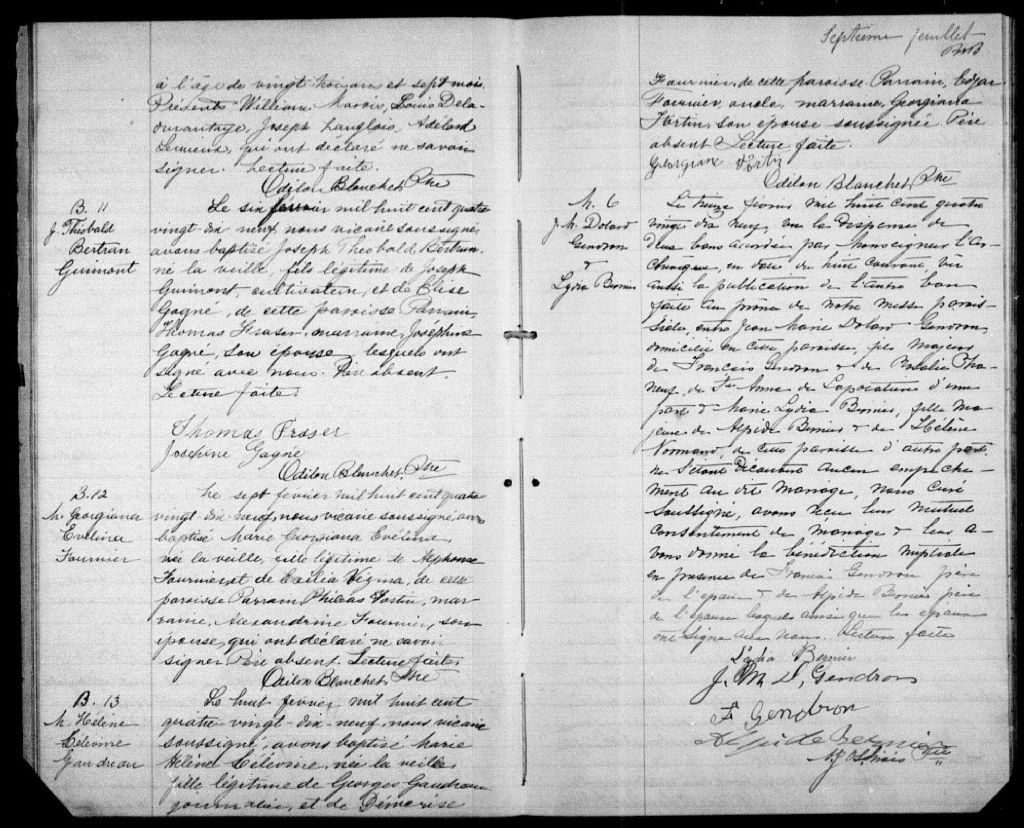 à l'âge de vingt trois ans et sept mois.
Présents William Marois, Louis Dela-
durantaye, Joseph Langlois, Adélard
Lemieux, qui ont déclaré ne savoir
signer. Lecture faite.
Odilon Blanchet, Ptre
B. 11
J. Théobald
Bertran
Guimont
Le six février mil huit cent quatre
vingt dix neuf, nous vicaire soussigné,
avons baptisé Joseph Théobald Bertran
né la veille, fils légitime de Joseph
Guimont, cultivateur, et de Elise
Gagné, de cette paroisse Parrain,
Thomas Fraser, marraine, Joséphine
Gagné, son épouse, lesquels ont
signé avec nous. Père absent.
Lecture faite.
Thomas Fraser
Josephine Gagné
Odilon Blanchet, Ptre
B. 12
M. Georgiana
Evelina
Fournier
Le sept fevrier mil huit cent quatre
vingt-dix-neuf, nous vicaire soussigné avons
baptisé Marie Georgiana Eveline
née la veille, fille légitime de Alphonse
Fournier et de Exilia Vézina, de cette
paroisse Parrain Philéas Fortin, mar-
raine, Alexandrine Fournier, son
épouse, qui ont déclaré ne savoir
signer Père absent. Lecture faite.
Odilon Blanchet Ptre
B. 13
M. Hélène
Célévine
Gaudreau
Le huit février mil huit cent
quatre vingt-dix-neuf, nous vicaire
soussigné, avons baptisé Marie
Hélène Célévine, née la veille
fille légitime de Georges Gaudreau
journalier, et de Démerise
Septième feuillet
Fournier, de cette paroisse Parrain, Edgar
Fournier, oncle, marraine, Georgiana
Fortin, son épouse soussignée Père
absent Lecture faite.
Georgiane Fortin
Odilon Blanchet, Ptre
M. 6
J. M. Dolard
Gendron
&
Lydia Bernier
Le treize février mil huit cent quatre
vingt dix neuf, vu la dispense de
deux bans accordée par Monseigneur l'Ar-
chevêque, en date du huit courant, vu
aussi la publication de l'autre ban
faite au prône de notre messe parois-
siale, entre Jean Marie Dolard Gendron,
domicilié en cette paroisse, fils majeur
de François Gendron & de
de Ste Anne de Lapocatière d'une
part & Marie Lydia Bernier, fille ma-
jeure de Alpide Bernier & de Hélène
Normand, de cette paroisse d'autre part,
ne s'étant découvert aucun empêche-
ment au dit mariage, nous curé
soussigné, avons reçu leur mutuel
consentement de mariage & leur a-
vons donné la bénédiction nuptiale
en présence de François Gendron père
de l'époux & de Alpide Bernier père
de l'épouse lesquels ainsi que les époux
ont signé avec nous. Lecture faite
Lydia Bernier
J. M. D. Gendron
F. Gendron
Alpide Bernier
Ptre